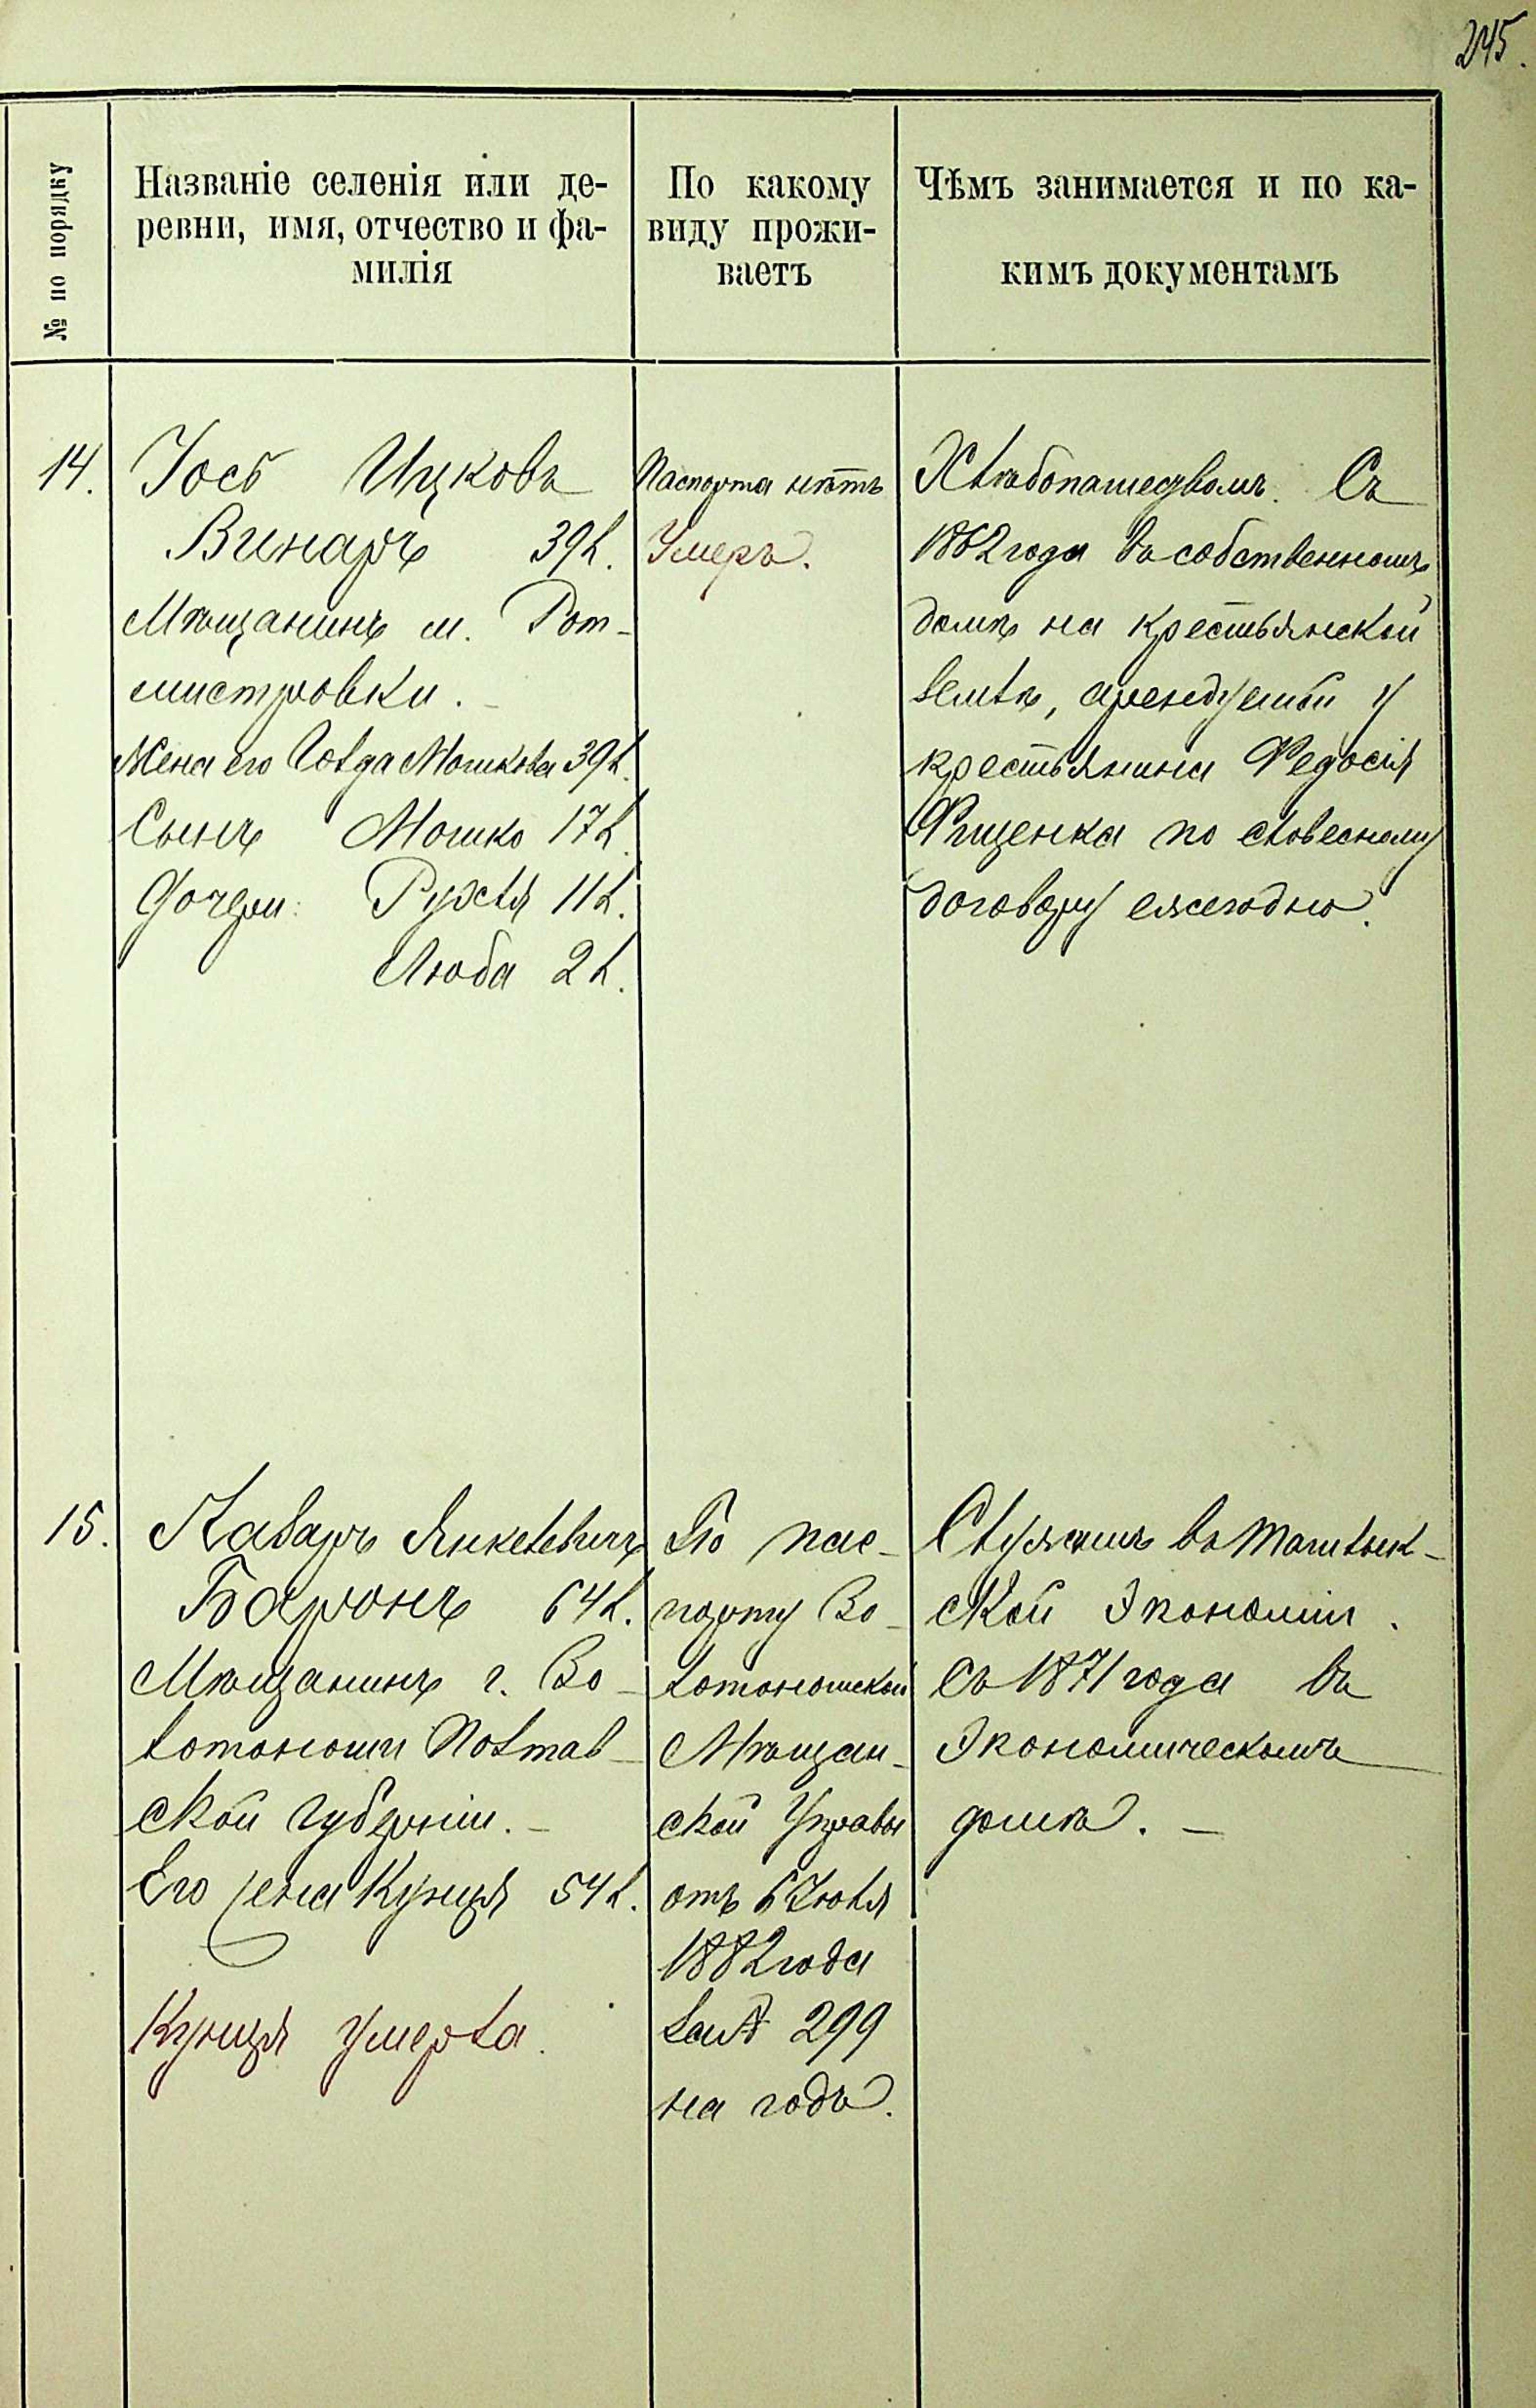 245.
№ по порядку
Названіе селенія или де-
ревни, имя, отчество и фа-
милія
По какому
виду прожи-
ваетъ
Чѣмъ занимается и по ка-
кимъ документамъ
14.
Іось Ицковъ
Винаръ 39 л.
Мѣщанинъ м. Рот-
мистровки.
Жена его Голда Мошкова 39 л.
Сынъ Мошко 17 л.
Дочери: Рухля 11 л.
Люба 2 л.
Паспорта нѣтъ
Умеръ.
Хлѣбопашествомъ. Съ
1862 года въ собственномъ
домѣ на крестьянской
землѣ, арендуемой у
крестьянина Федосія
Фищенка по словесному
договору ежегодно.
15.
Лазаръ Янкелевичъ
Баронъ 64 л.
Мѣщанинъ г. Зо-
лотоноши Полтав-
ской губерніи. -
Его жена Кунця 54 л.
Кунця умерла.
По пас-
порту Зо-
лотоношской
Мѣщан-
ской Управы
отъ 6 Июля
1882 года
за № 299
на годъ.
Служитъ въ Ташлык-
ской Экономіи.
Съ 1871 года въ
Экономическомъ
домѣ. -